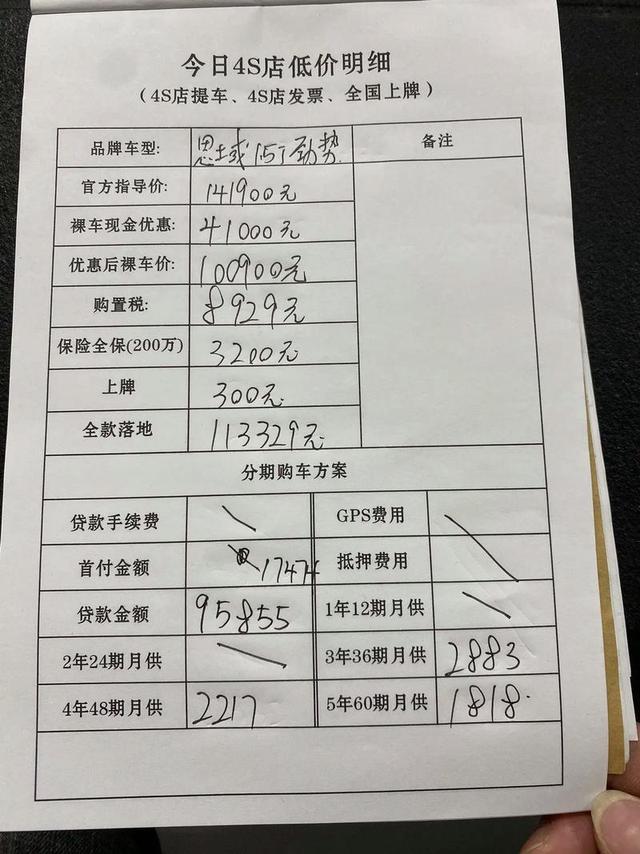 今日4S店低价明细
(4S店提车、4S店发票、全国上牌)
品牌车型: 思域15T劲势 备注
官方指导价: 141900元
裸车现金优惠: 41000元
优惠后裸车价: 100900元
购置税: 8929元
保险全保(200万) 3200元
上牌 300元
全款落地 113329元
分期购车方案
贷款手续费 GPS费用
首付金额 17474 抵押费用
贷款金额 95855 1年12期月供
2年24期月供 3年36期月供 2883
4年48期月供 2217 5年60期月供 1818